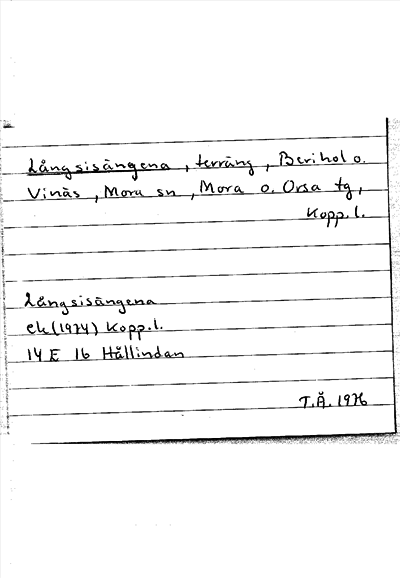 Långsisängena, terräng, Berihol o.
Vinäs, Mora sn, Mora o. Orsa tg,
Kopp. l.
Långsisängena
ek (1974) Kopp. l.
14 E 16 Hållindan
T.Å. 1976